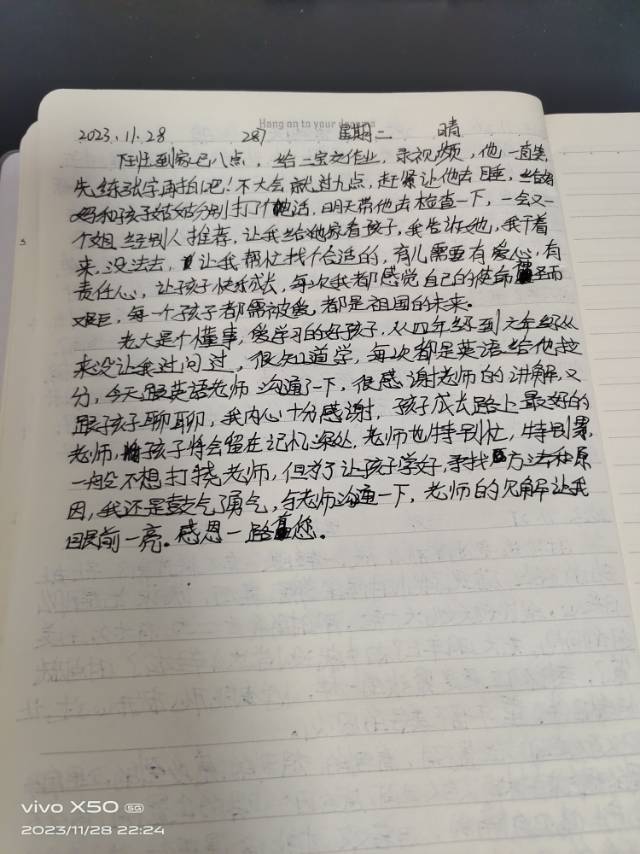 Hang on to your dreams
2023.11.28 287 星期二 晴
下班到家已八点，给二宝交作业，录视频，他一直笑，
先练张字再拍吧！不大会就过九点，赶紧让他去睡，给
妈和孩子姑姑分别打了个电话，明天带他去检查一下，一会又一
个姐经别人推荐，让我给她家看孩子，我告诉她，我干着
来，没法去，让我帮忙找个合适的，育儿需要有爱心，有
责任心，让孩子快乐成长，每次我都感觉自己的使命而
艰巨，每一个孩子都需被爱，都是祖国的未来。
老大是个懂事，爱学习的好孩子，从四年级到六年级从
来没让我过问过，很知道学，每次都是英语给他拉
分，今天跟英语老师沟通了一下，很感谢老师的讲解，又
跟孩子聊聊，我内心十分感谢，孩子成长路上最好的
老师，孩子将会留在记忆深处，老师也特别忙，特别累，
一般不想打扰老师，但为了让孩子学好，寻找方法和原
因，我还是鼓气了勇气，与老师沟通一下，老师的见解让我
眼前一亮。感恩一路有您。
vivo X50 5G
2023/11/28 22:24